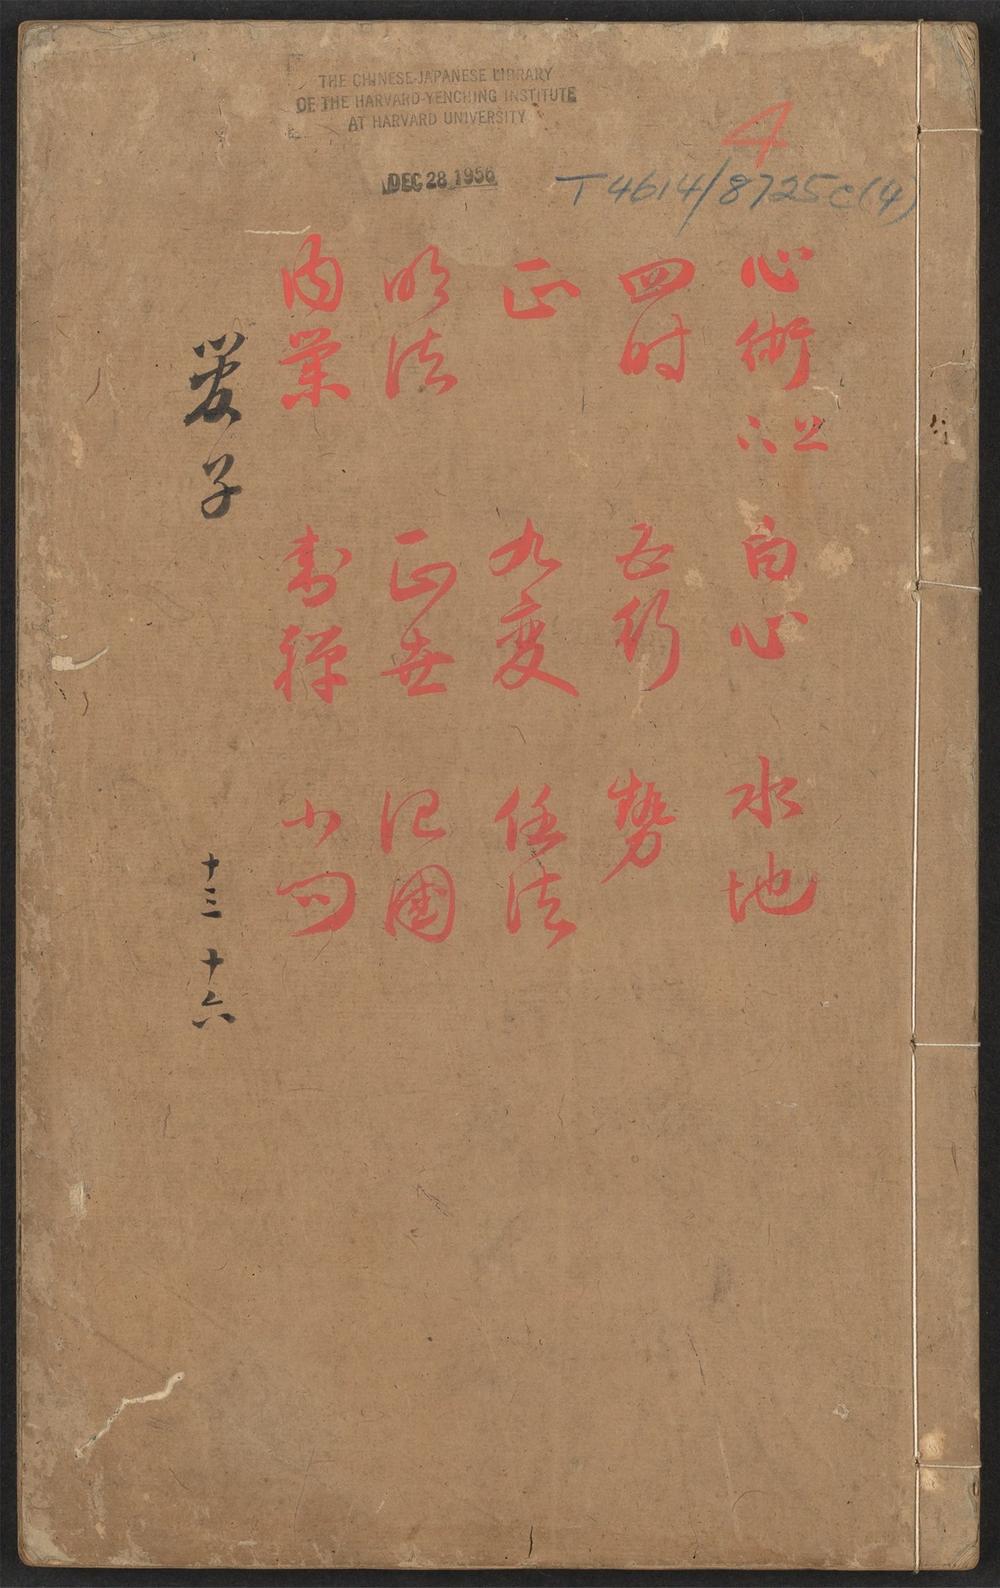 THE CHINESE-JAPANESE LIBRARY
OF THE HARVARD-YENCHING INSTITUTE
AT HARVARD UNIVERSITY
DEC 28 1956
4
T4614/8725c(4)
心術上下 白心 水地
四时 五行 勢
正 九変 任法
明法 正世 治國
内業 封禪 小問
管子 十三 十六